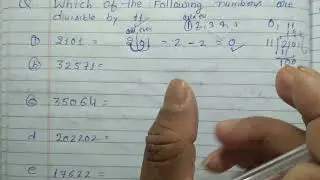 Q Which of the following numbers are
divisible by 11
odd even
1, 2, 3, 4, 5 0, 11
(1) 2101 = 2101 = 2 - 2 = 0 11
(b) 32571 =
(c) 35064 =
d 202202 =
e 17622 =